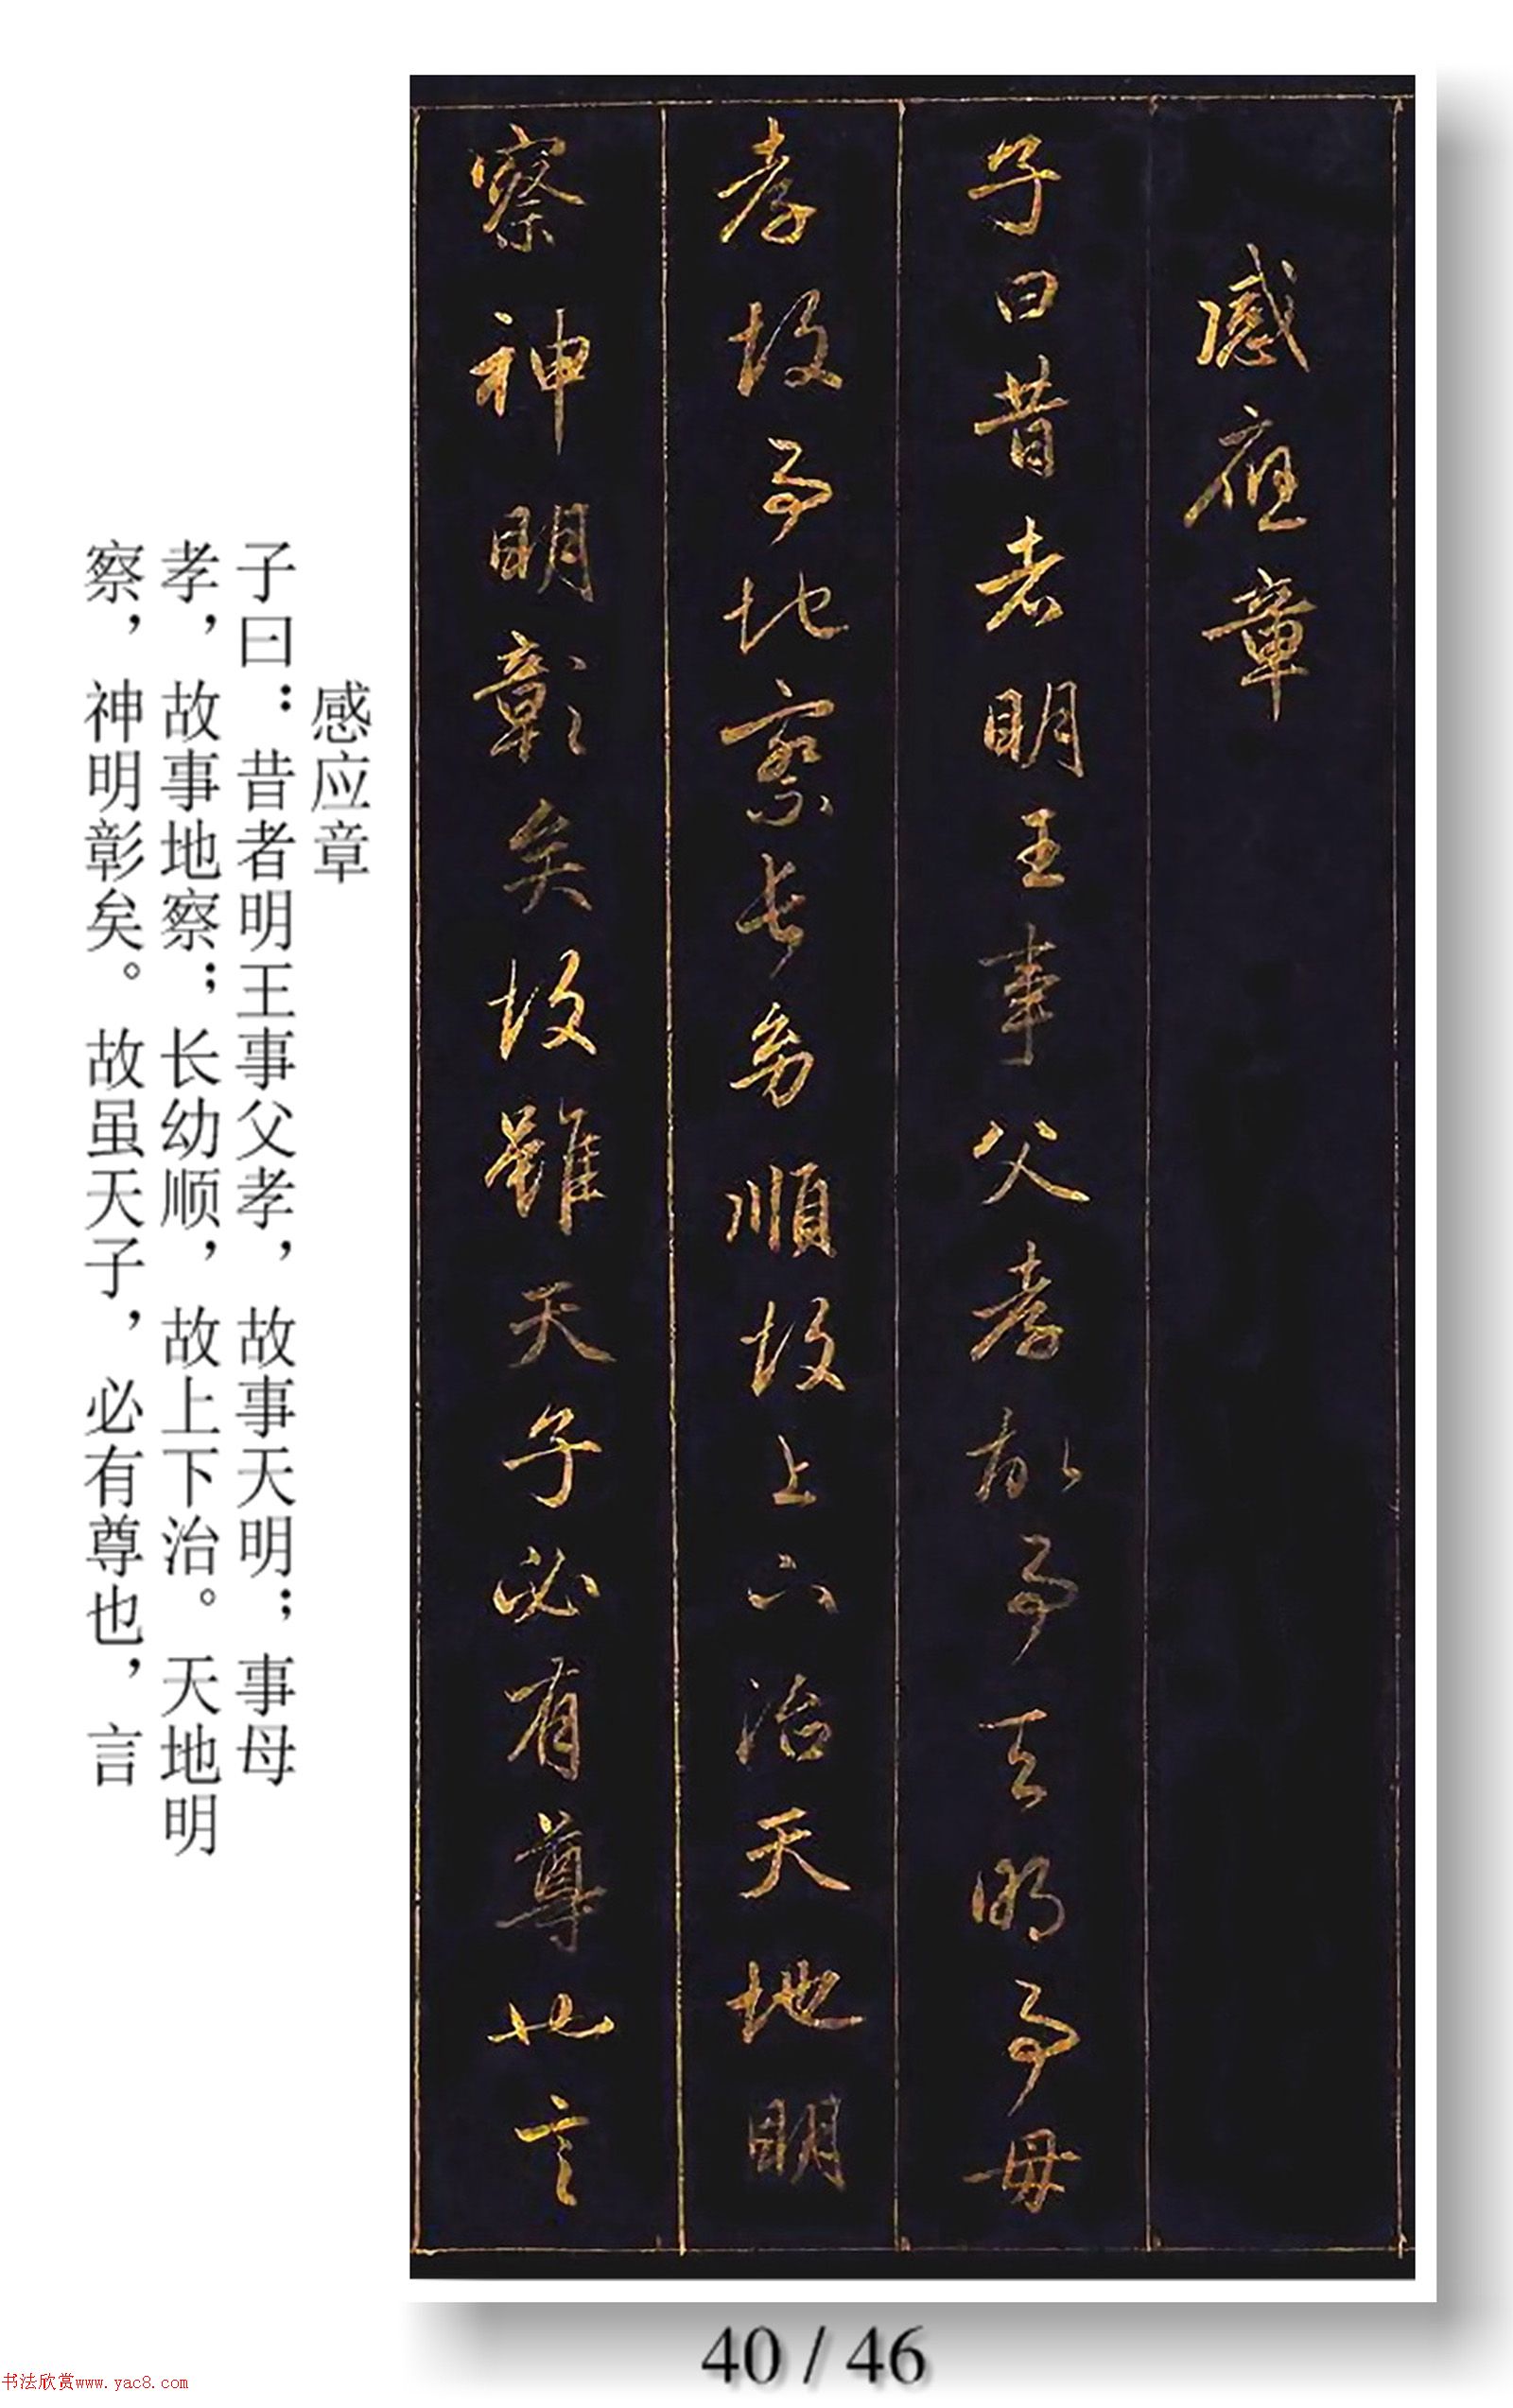 感應章
子曰昔者明王事父孝故事天明事母
孝故事地察長幼順故上下治天地明
察神明彰矣故雖天子必有尊也言
感应章
子曰：昔者明王事父孝，故事天明；事母
孝，故事地察；长幼顺，故上下治。天地明
察，神明彰矣。故虽天子，必有尊也，言
40 / 46
书法欣赏www.yac8.com